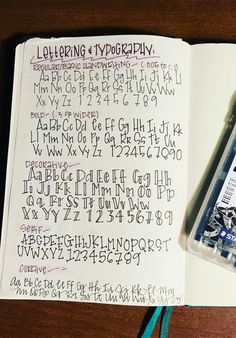 LETTERING & TYPOGRAPHY:
REGULAR/BASIC HANDWRITING - (.005 to
Aa Bb Cc Dd Ee Ff Gg Hh Ii Jj Kk Ll
Mm Nn Oo Pp Qq Rr Ss Tt Uu Vv Ww
Xx Yy Zz 1 2 3 4 5 6 7 8 9
BOLD - (.3 or WIDER)
Aa Bb Cc Dd Ee Ff Gg Hh Ii Jj Kk
Ll Mm Nn Oo Pp Qq Rr Ss Tt Uu
Vv Ww Xx Yy Zz 1 2 3 4 5 6 7 8 9 0
DECORATIVE -
Aa Bb Cc Dd Ee Ff Gg Hh
Ii Jj Kk Ll Mm Nn Oo Pp
Qq Rr Ss Tt Uu Vv Ww
Xx Yy Zz 1 2 3 4 5 6 7 8 9
SERIF -
ABCDEFGHIJKLMNOPQRST
UVWXYZ 1 2 3 4 5 6 7 8 9
CURSIVE -
Aa Bb Cc Dd Ee Ff Gg Hh Ii Jj Kk Ll Mm
Nn Oo Pp Qq Rr Ss Tt Uu Vv Ww Xx Yy Zz